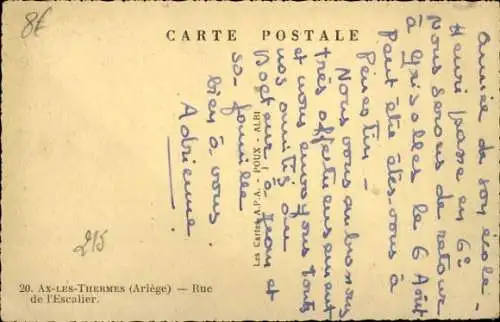 8€
CARTE POSTALE
année de son école -
Henri passe en 6e
nous serons de retour
à Grisolles le 6 Août
Peut être êtes-vous à
Pénestin -
Nous vous embrassons
très affectueusement
et vous envoyons tous
nos amitiés au
Docteur à Jean et
sa famille
bien à vous.
Adrienne
215
Les Cartes A.P.A. - POUX - ALBI
20. AX-LES-THERMES (Ariège) — Rue
de l'Escalier.